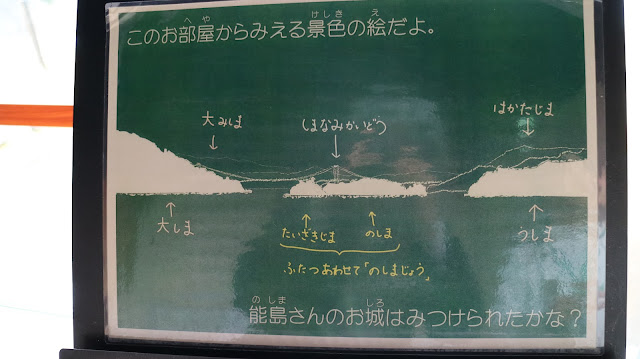 このお部屋からみえる景色の絵だよ。
大みしま
しまなみかいどう
はかたじま
大しま
たいざきじま
のしま
うしま
ふたつあわせて「のしまじょう」
能島さんのお城はみつけられたかな？